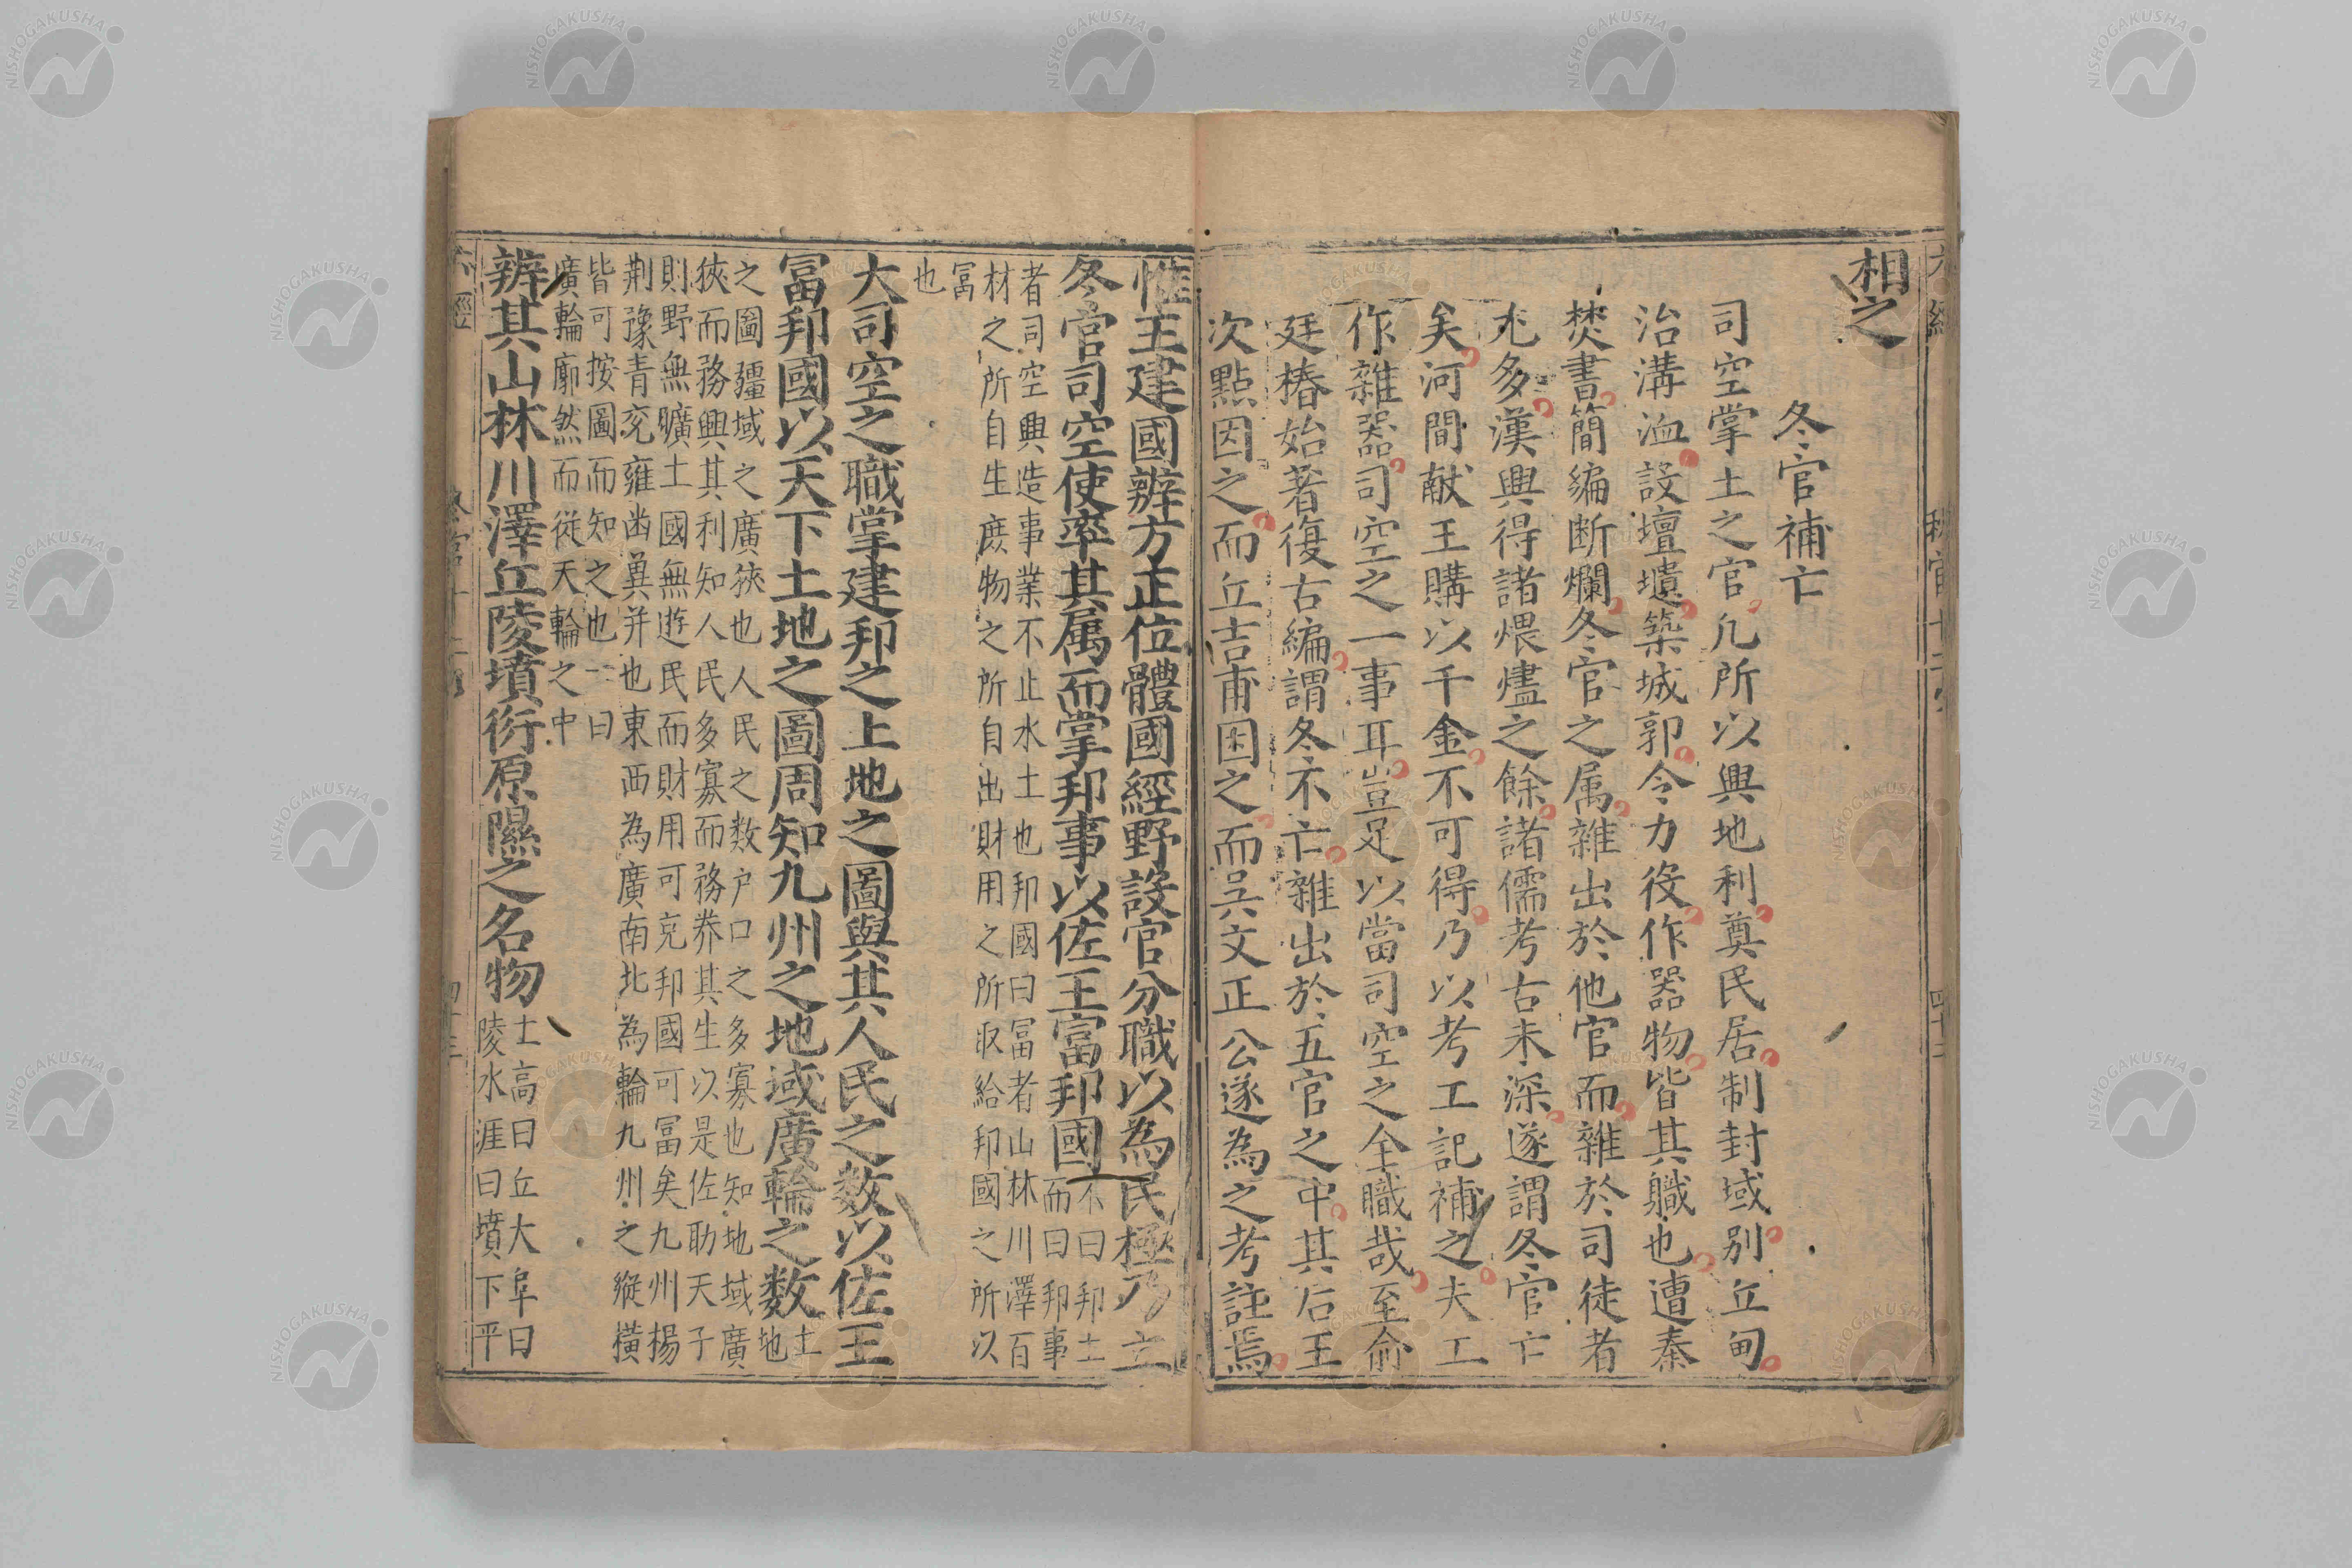 相之
冬官補亡
司空掌土之官凢所以興地利奠民居制封域別丘甸
治溝洫設壇壝築城郭令力役作器物皆其軄也遭秦
焚書簡編断爛冬官之属雜出於他官而雜於司徒者
尤多漢興得諸煨燼之餘諸儒考古未深遂謂冬官亡
矣河間献王購以千金不可得乃以考工記補之夫工
作雜器司空之一事耳豈足以當司空之全職哉至俞
廷椿始著復古編謂冬不亡雜出於五官之中其后王
次點因之而丘吉甫因之而吳文正公遂為之考註焉
惟王建國辨方正位體國經野設官分職以為民極乃立
冬官司空使率其属而掌邦事以佐王富邦國不曰邦土
而曰邦事
者司空興造事業不止水土也邦國曰冨者山林川澤百
材之所自生庶物之所自出財用之所取給邦國之所以
冨
也
大司空之職掌建邦之土地之圖與其人民之数以佐王
冨邦國以天下土地之圖周知九州之地域廣輪之数土
地
之圖疆域之廣狹也人民之数户口之多寡也知地域廣
狹而務興其利知人民多寡而務养其生以是佐助天子
則野無曠土國無遊民而財用可充邦國可冨矣九州楊
荆豫青兖雍幽冀并也東西為廣南北為輪九州之縱横
皆可按圖而知之也一曰
廣輪廓然而従天輪之中
辨其山林川澤丘陵墳衍原隰之名物土高曰丘大阜曰
陵水涯曰墳下平
NISHOGAKUSHA